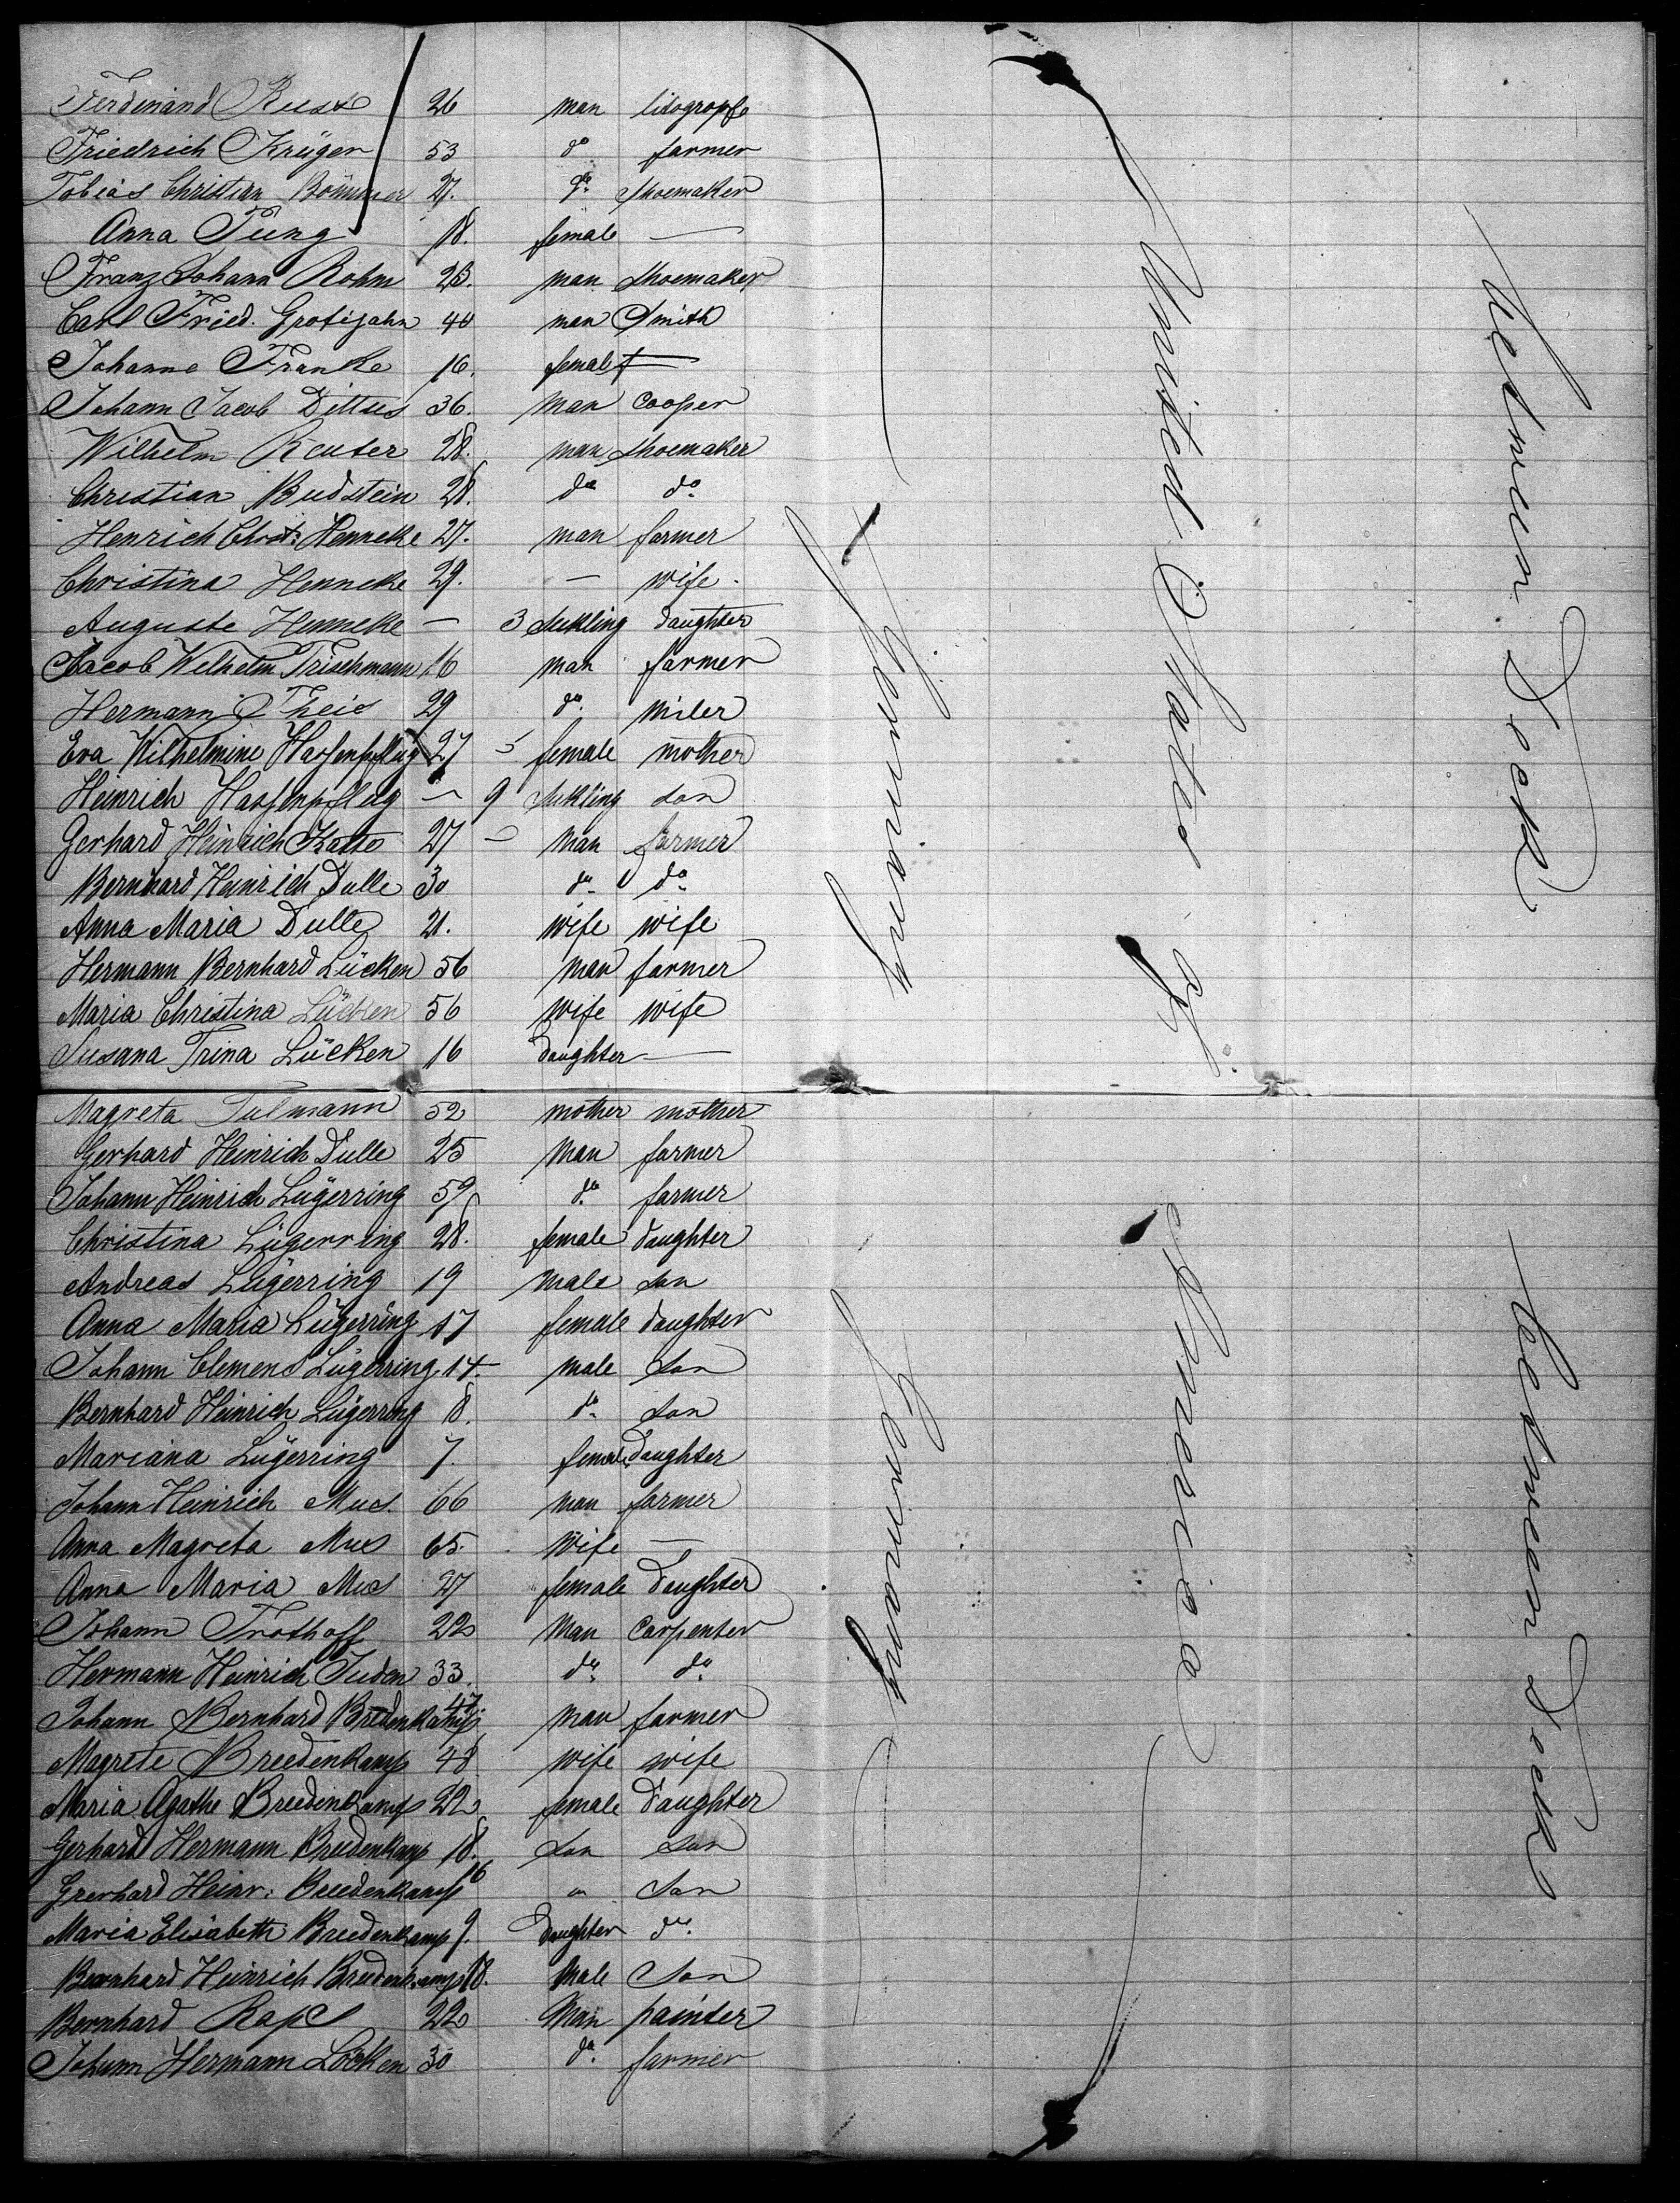 Ferdinand Rust 26 man litogropfe
Friedrich Krüger 53 do farmer
Tobias Christian Bömmer 27. do Shoemaker
Anna Jung 18. female —
Franz Johann Rohm 23. man Shoemaker
Carl Fried. Grotijahn 40 man Smith
Johanne Franke 16. female —
Johann Jacob Dittus 36. man Cooper
Wilhelm Reuter 28. man Shoemaker
Christian Budstein 28. do do
Henrich Chrst: Henneke 27. man farmer
Christina Henneke 29. — wife.
Auguste Henneke — 3 Sukling daughter
Jacob Wilhelm Trischmann 16 man farmer
Hermann Theis 29 do. Miler
Eva Wilhelmine Hassenpflug 27 female mother
Heinrich Hassenpflug — 9 Sukling son
Gerhard Heinrich Katto 27 — man farmer
Bernhard Heinrich Dulle 30 do do
Anna Maria Dulle 21. wife wife
Hermann Bernhard Lücken 56 man farmer
Maria Christina Lücken 56 wife wife
Susana Trina Lücken 16 daughter —
Magreta Tulmann 52 mother mother
Gerhard Heinrich Dulle 25 man farmer
Johann Heinrich Lügerring 59 do farmer
Christina Lügerring 28. female daughter
Andreas Lügerring 19 male son
Anna Maria Lügerring 17 female daughter
Johann Clemens Lügerring 14. male son
Bernhard Heinrich Lügerring 8. do son
Mariana Lügerring 7. female daughter
Johann Heinrich Mues 66 man farmer
Anna Magreta Mues 65. wife —
Anna Maria Mues 27 female daughter
Johann Trothoff 22 Man Carpenter
Hermann Heinrich Juden 33. do do
Johann Bernhard Bredenkamp 47 man farmer
Magrete Breedenkamp 48 wife wife
Maria Agathe Breedenkamp 22 female daughter
Gerhard Hermann Breedenkamp 18. son son
Grerhard Heinr: Breedenkamp 16 " son
Maria Elisabeth Breedenkamp 9. daughter do.
Bernhard Heinrich Breedenkamp 18. Male son
Bernhard Rape 22 Man painter
Johann Hermann Löcken 30 do. farmer
Germany
Germany
United States of
America
between Deck
between Deck